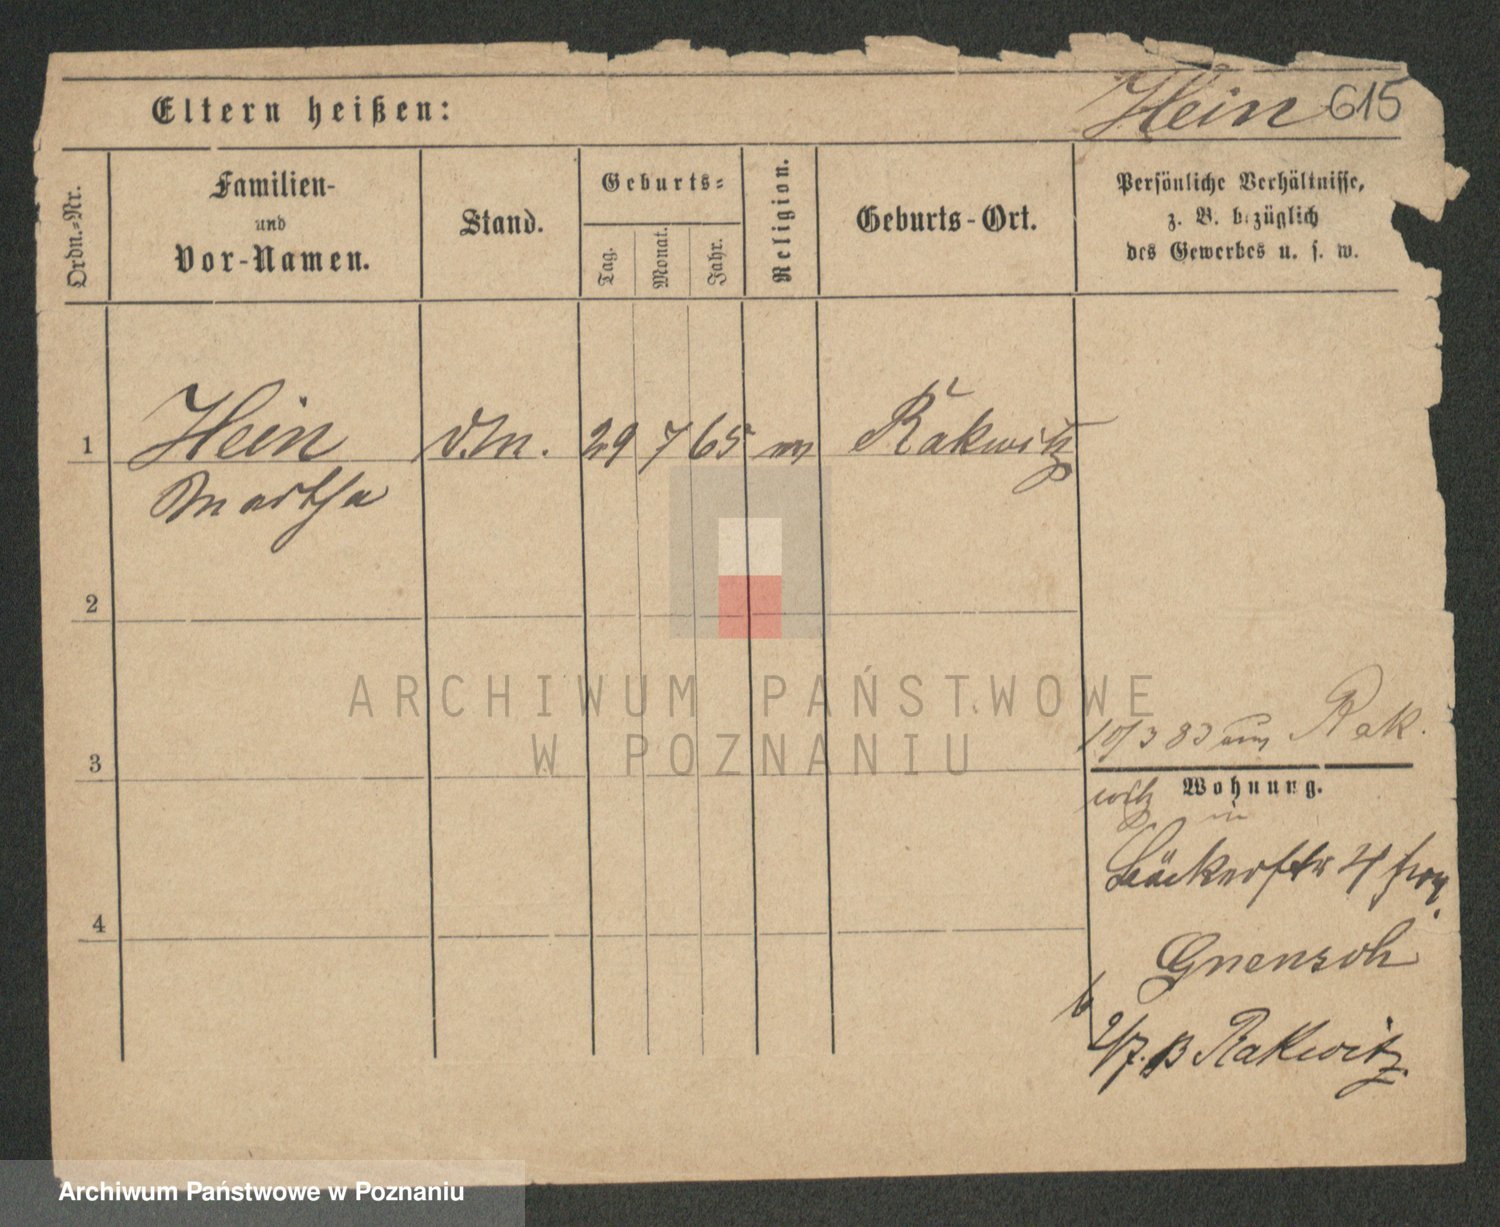 Eltern heißen: Hein 615
Ordn.-Nr.
Familien-
und
Vor-Namen.
Stand.
Geburts-
Tag.
Monat.
Jahr.
Religion.
Geburts-Ort.
Persönliche Verhältnisse,
z. B. bezüglich
des Gewerbes u. s. w.
1 Hein d.M. 29 7 65 Rakwitz
Martha
2
3
4
10/3 83 Rak.
witz
Wohnung.
in
Bäckerstr 4
Gnensch
2/7. B Rakwitz.
ARCHIWUM PAŃSTWOWE
W POZNANIU
Archiwum Państwowe w Poznaniu